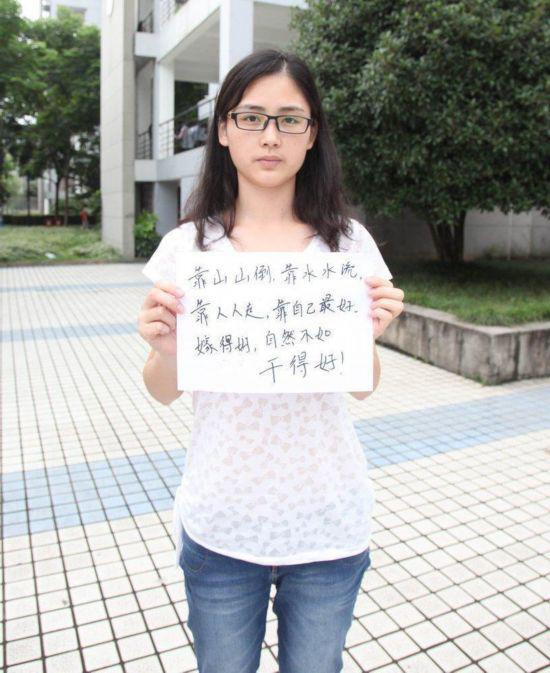 靠山山倒，靠水水流，
靠人人走，靠自己最好。
嫁得好，自然不如
干得好！